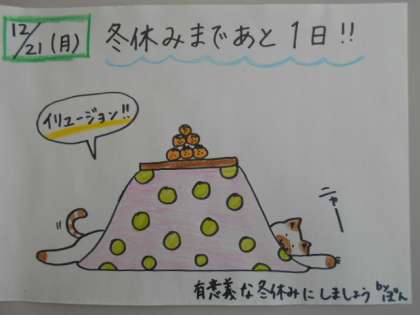 12/21(月)
冬休みまであと1日!!
イリュージョン!!
ニャー
有意義な冬休みにしましょう
by ぽん